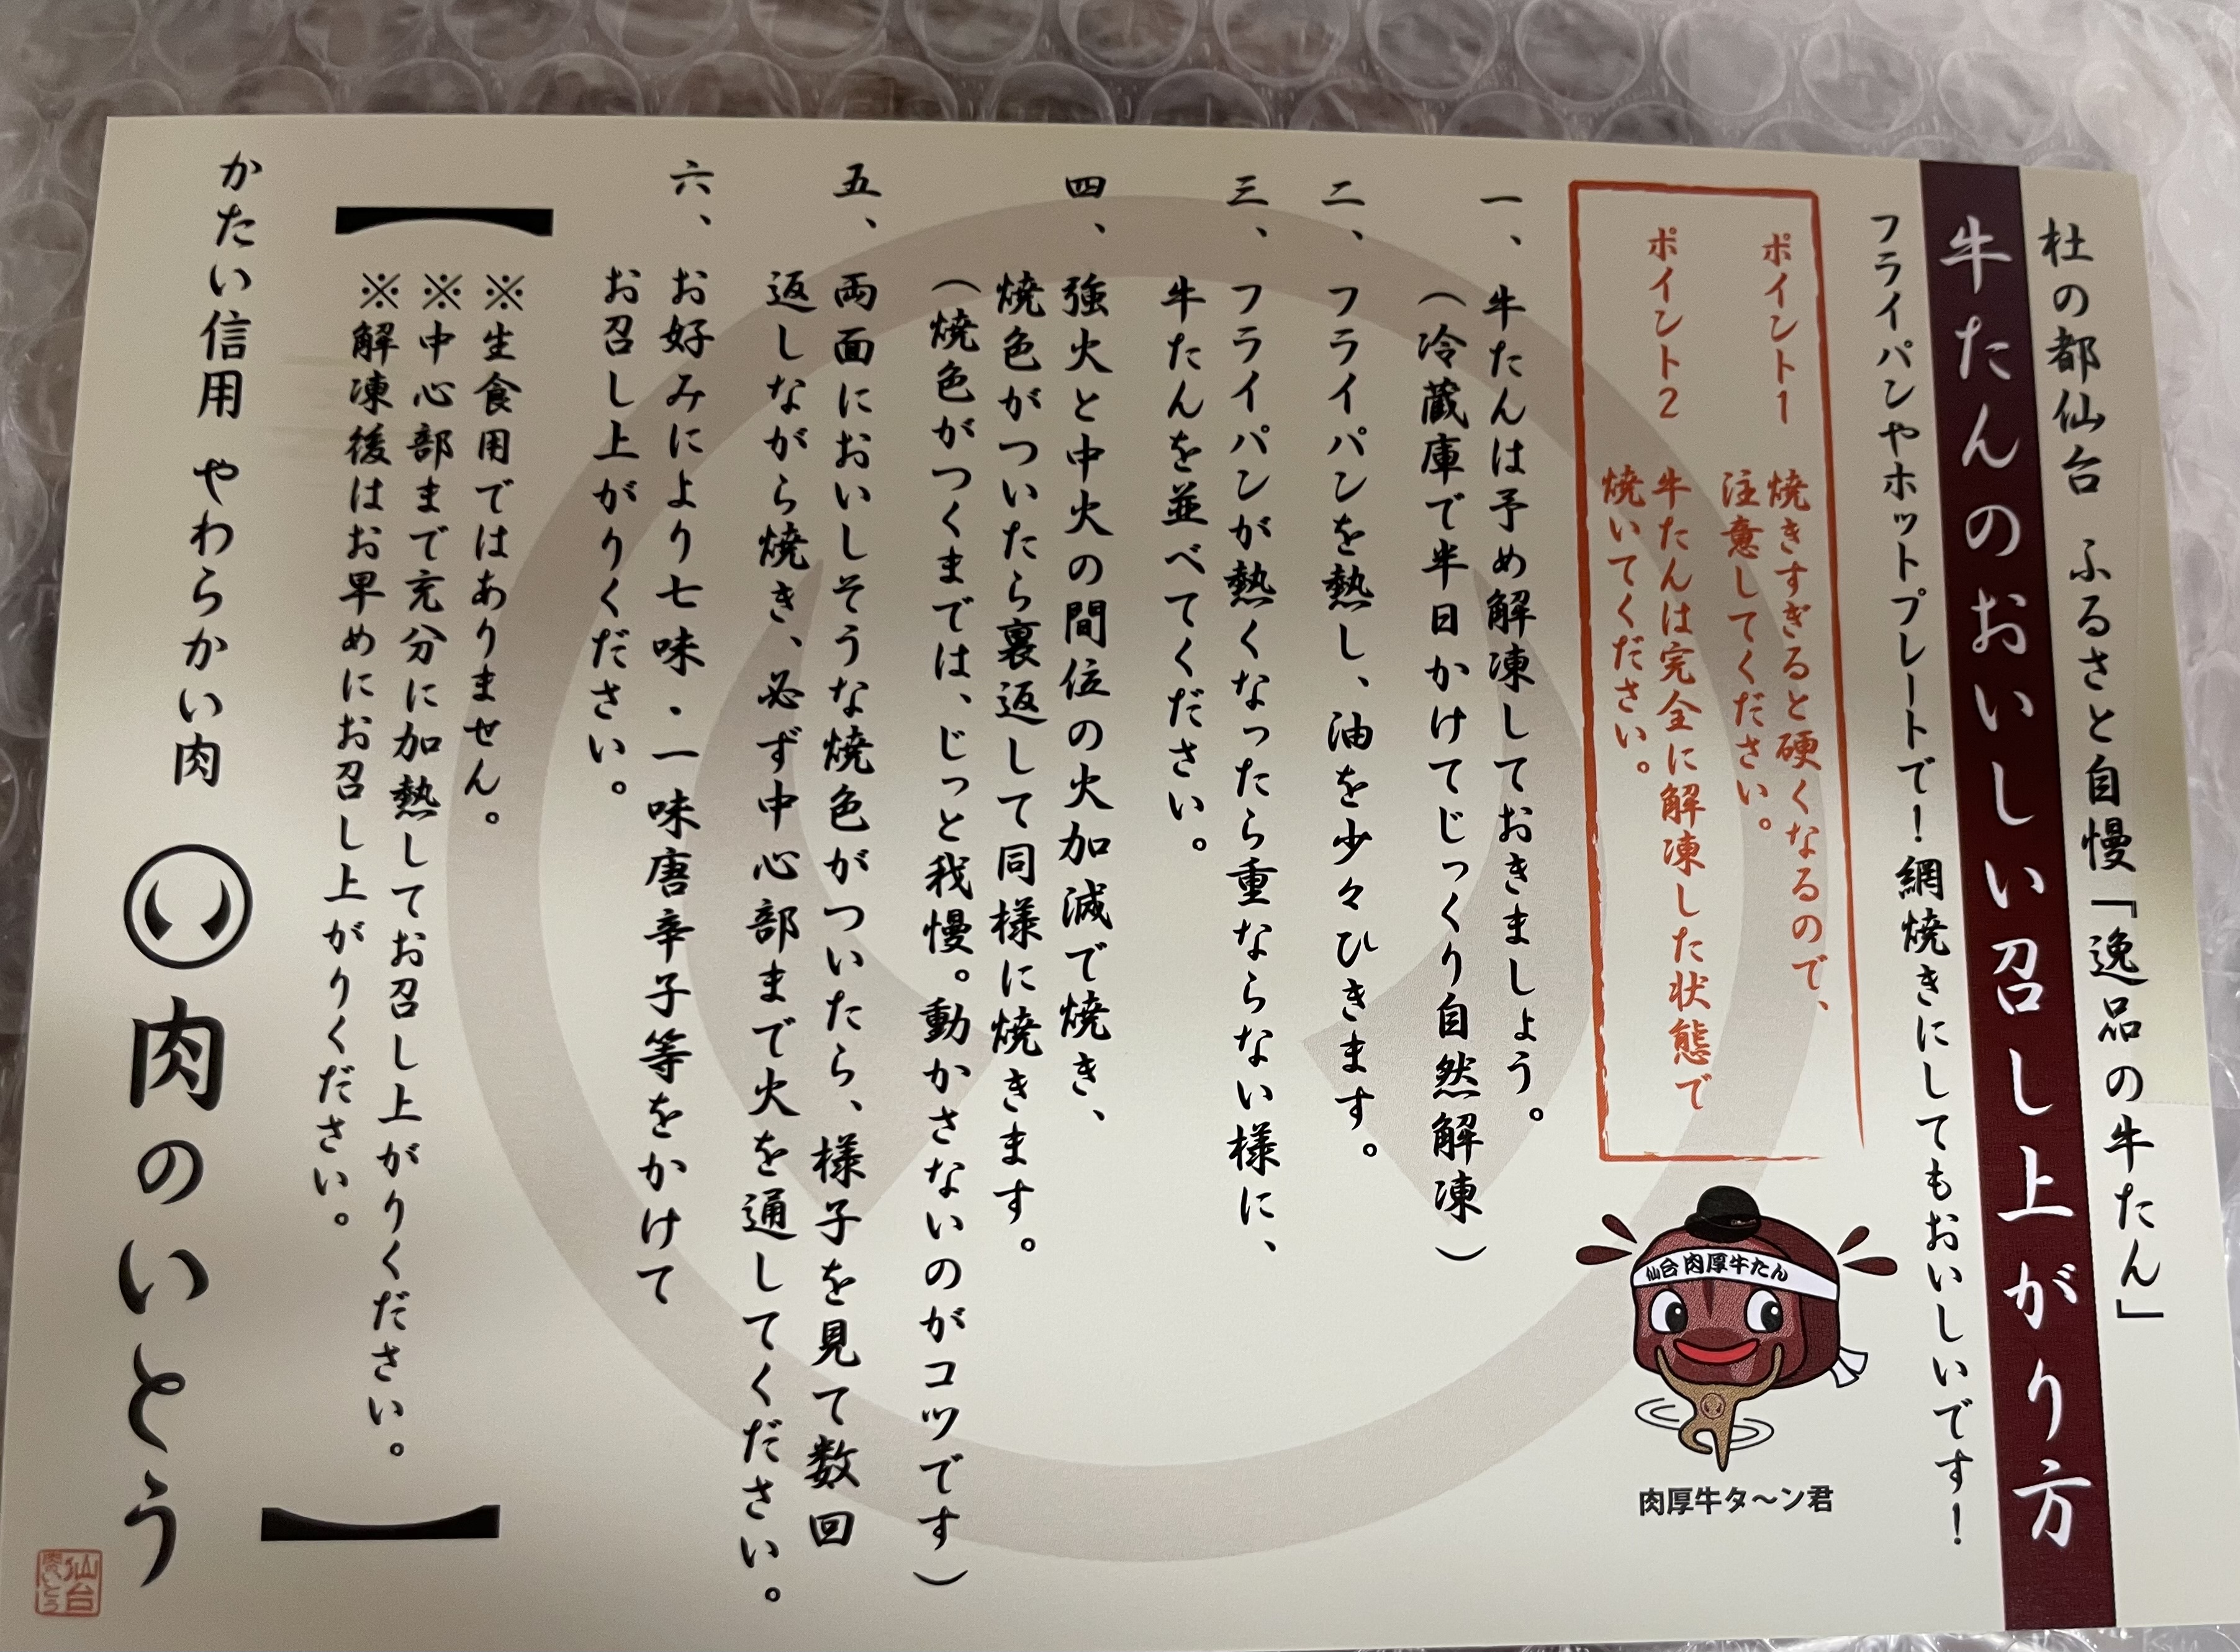 杜の都仙台 ふるさと自慢「逸品の牛たん」
牛たんのおいしい召し上がり方
フライパンやホットプレートで!網焼きにしてもおいしいです!
ポイント1 焼きすぎると硬くなるので、
注意してください。
ポイント2 牛たんは完全に解凍した状態で
焼いてください。
仙台 肉厚牛たん
肉厚牛タ〜ン君
一、牛たんは予め解凍しておきましょう。
(冷蔵庫で半日かけてじっくり自然解凍)
二、フライパンを熱し、油を少々ひきます。
三、フライパンが熱くなったら重ならない様に、
牛たんを並べてください。
四、強火と中火の間位の火加減で焼き、
焼色がついたら裏返して同様に焼きます。
(焼色がつくまでは、じっと我慢。動かさないのがコツです)
五、両面においしそうな焼色がついたら、様子を見て数回
返しながら焼き、必ず中心部まで火を通してください。
六、お好みにより七味・一味唐辛子等をかけて
お召し上がりください。
【※生食用ではありません。
※中心部まで充分に加熱してお召し上がりください。
※解凍後はお早めにお召し上がりください。】
かたい信用 やわらかい肉 い 肉のいとう
仙台
肉のいとう